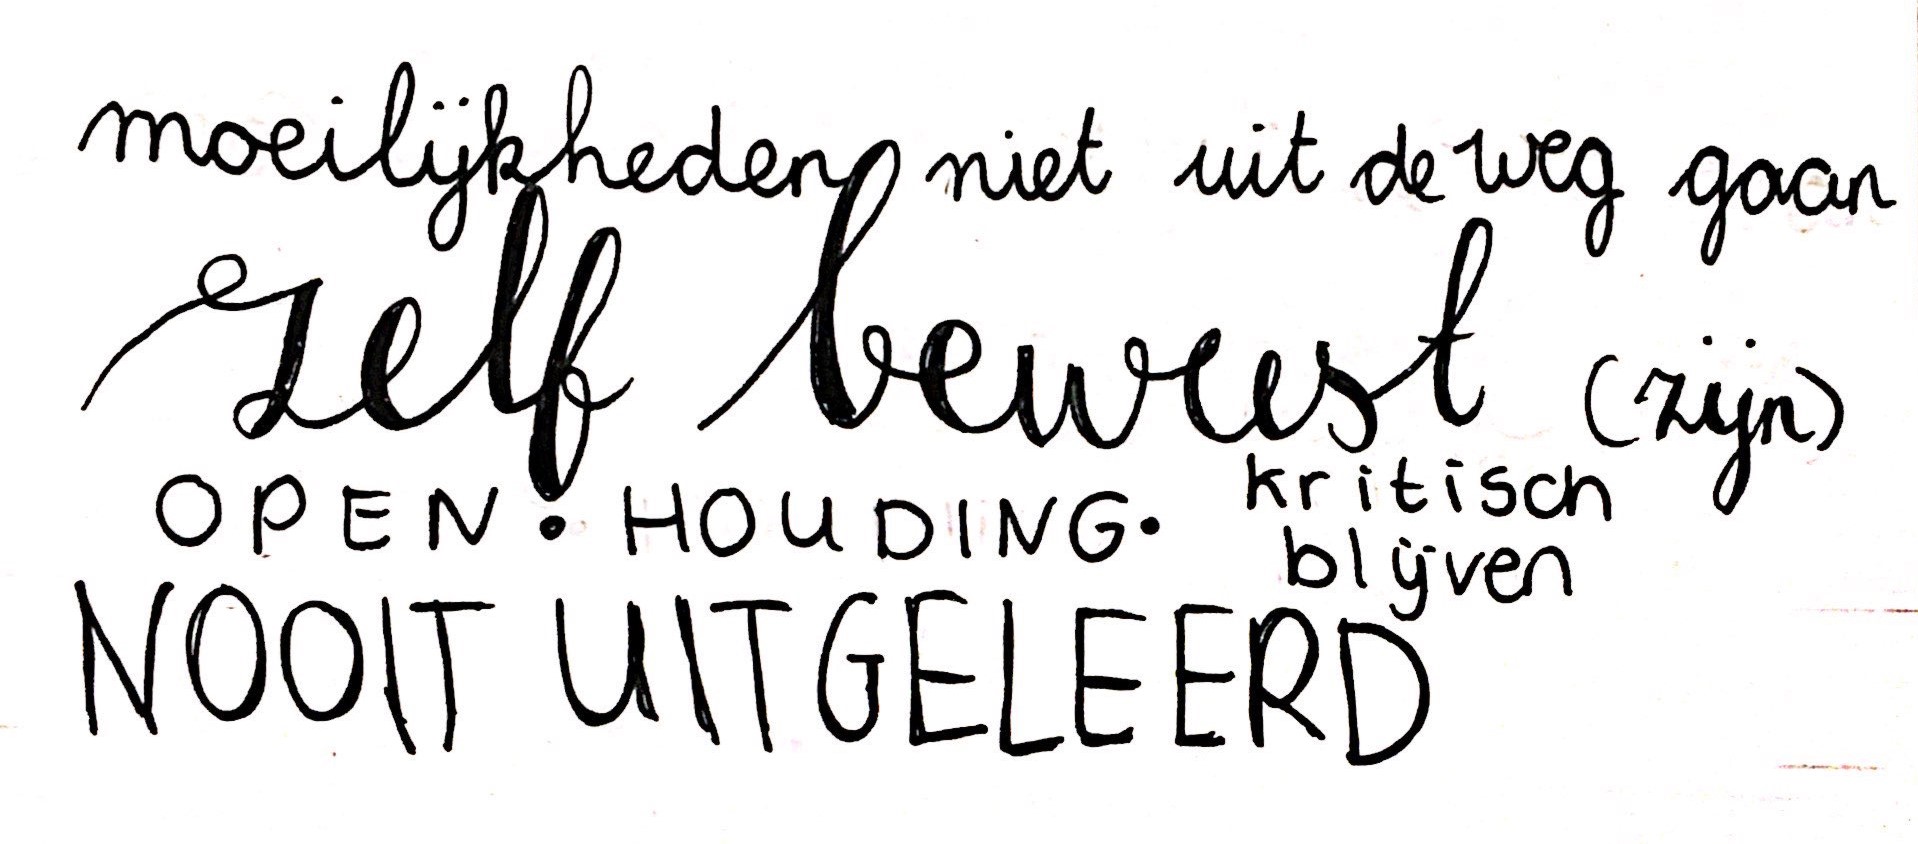 moeilijkheden niet uit de weg gaan
zelf bewust (zijn)
OPEN • HOUDING •
kritisch
blijven
NOOIT UITGELEERD